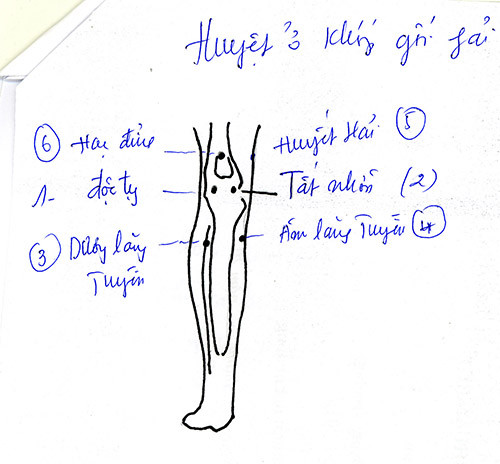 Huyệt ở khớp gối fải
6 Hạc đỉnh
Huyết Hải 5
1- độc tỵ
Tất nhãn (2)
3 Dương lăng
Tuyền
Âm lăng Tuyền 4